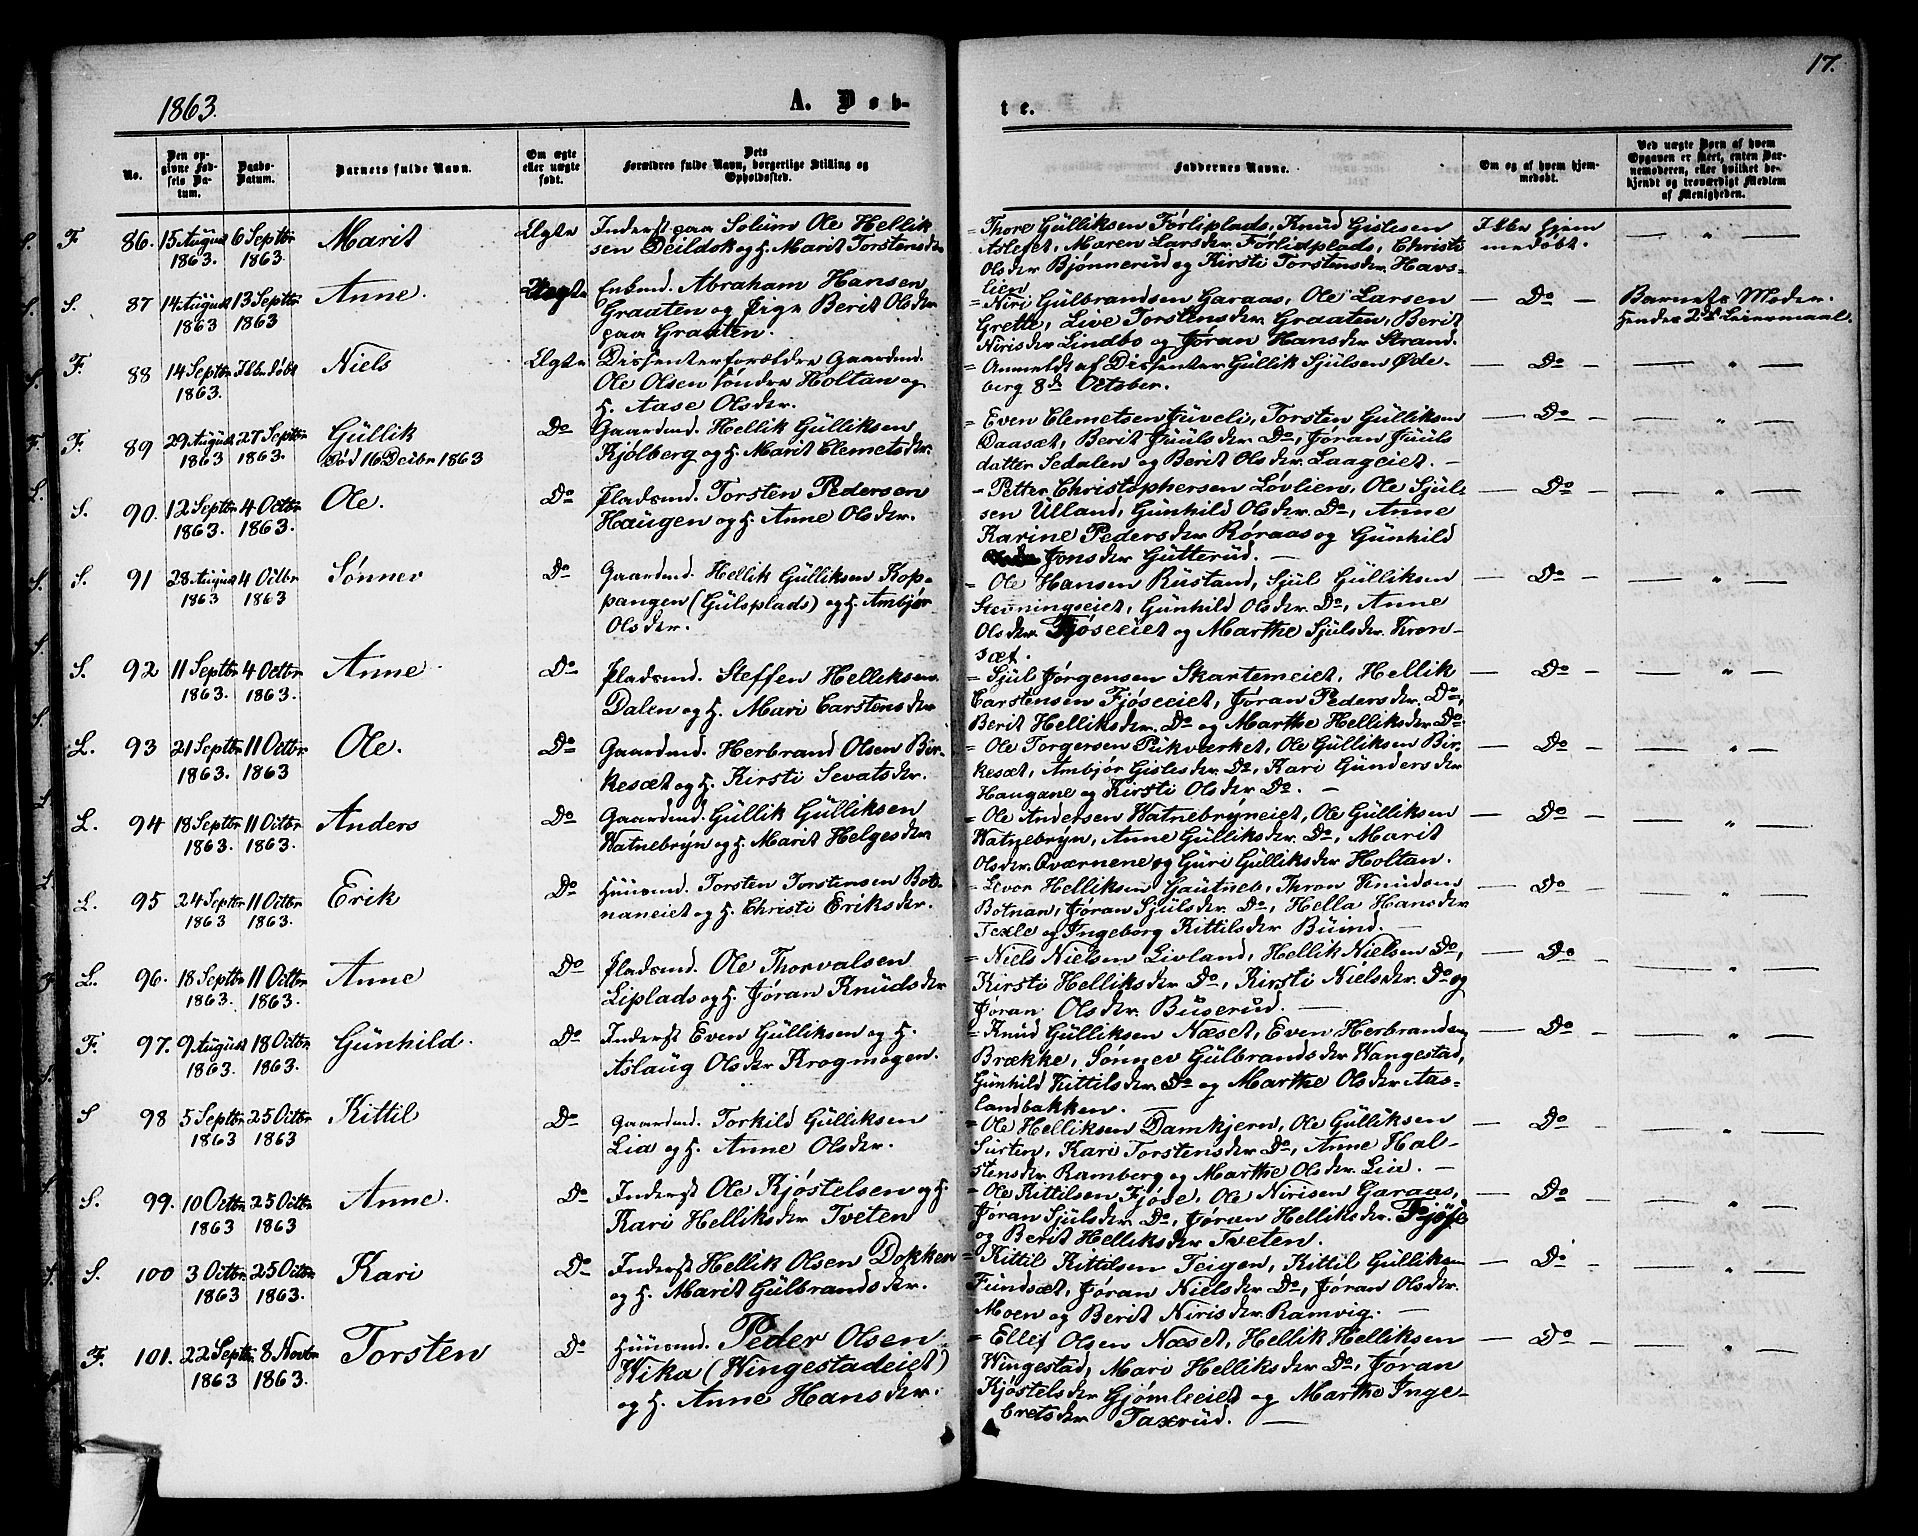 17.
1863.
A. Døb-
te.
No.
Den opgivne Fødsels Datum.
Daabs-Datum.
Barnets fulde Navn.
Om ægte eller uægte født.
Dets Forældres fulde Navn, borgerlige Stilling og Opholdssted.
Faddernes Navne.
Om og af hvem hjemmedøbt.
Ved uægte Børn af hvem Opgaven er skeet, enten Barnemoderen, eller hvilket bekjendt og troværdigt Medlem af Menigheden.
F. 86. 15 August 1863. 6 Septbr 1863. Marit Ægte
Inderst paa Solum Ole Hellik
sen Deildok og H. Marit Torstensdtr
= Thore Gulliksen Forliplads, Knud Gislesen
Aslefet, Maren Larsdtr Förlidplads, Christi
Olsdtr Bjønnerud og Kirsti Torstensdtr. Havs-
lien
Ikke hjem
medøbt.
S. 87 14 August 1863 13 Septbr 1863 Anne. Uægte
Enkemd. Abraham Hansen
Graaten og Pige Berit Olsdtr
paa Graaten.
= Niri Gulbrandsen Garaas, Ole Larsen
Grette, Live Torstensdtr Graaten, Berit
Nirisdtr Lindbo og Jøran Hansdtr Strand.
— Do —
Barnets Moder.
hendes 2det Leiermaal.
F. 88 14 Septbr 1863. Ikke døbt Niels Ægte
Dissenterforældre Gaardmd.
Ole Olsen Søndre Holtan og
H. Aase Olsdtr.
= Anmeldt af Dissenter Gullik Sjulsen Øde-
berg 8de October.
— Do —
F. 89 29 August 1863 27 Septbr 1863. Gullik
Død 16 Decbr 1863
Do
Gaardmd. Hellik Gulliksen
Kjølberg og H. Marit Clemetsdtr.
= Even Clemetsen Juveli, Torsten Gulliksen
Daasæt, Berit Juulsdtr Do, Jøran Juuls
datter Sedalen og Berit Olsdtr. Laageiet. —
— Do —
S. 90. 12 Septbr 1863. 4 Octbr 1863. Ole. Do
Pladsmd. Torsten Pedersen
Haugen og H. Anne Olsdtr.
= Petter Christophersen Løvlien, Ole Sjul-
sen Ulland, Gunhild Olsdtr. Do, Anne
Karine Pedersdtr Røraas og Gunhild
Jonsdtr Gutterud. —
— Do —
S. 91 28 August 1863 4 Octbr 1863 Sønnev Do
Gaardmd. Hellik Gulliksen Kop-
pangen (Gulsplads) og H. Ambjør
Olsdtr.
= Ole Hansen Rustand, Sjul Gulliksen
Stevningseiet, Gunhild Olsdtr. Do, Anne
Olsdtr. Fjøseeiet og Marthe Sjulsdtr. Kron-
sæt.
— Do —
S. 92 11 Septbr 1863. 4 Octbr 1863. Anne. Do
Pladsmd. Steffen Helliksen
Dalen og H. Mari Carstensdtr
= Sjul Jørgensen Skartemeiet, Hellik
Carstensen Fjøseeiet, Jøran Pedersdtr. Do,
Berit Helliksdtr. Do og Marthe Helliksdtr. Do
— Do —
L. 93 21 Septbr 1863. 11 Octbr 1863 Ole. Do
Gaardmd. Herbrand Olsen Bir-
kesæt og H. Kirsti Sevatsdtr.
= Ole Torgersen Pukværket, Ole Gulliksen Bir-
kesæt, Ambjør Gislesdtr. Do, Kari Gundersdtr
Haugane og Kirsti Olsdtr Do. —
— Do —
L. 94 18 Septbr 1863. 11 Octbr 1863. Anders Do
Gaardmd. Gullik Gulliksen
Watnebryn og H. Marit Helgesdtr
= Ole Andersen Watnebryneiet, Ole Gulliksen
Watnebryn, Anne Gulliksdtr. Do, Marit
Olsdtr. Qværnene og Guri Gulliksdtr Holtan.
— Do —
L. 95 24 Septbr 1863 11 Octbr 1863. Erik Do
Huusmd. Torsten Torstensen Bot-
naneiet og H. Christi Eriksdtr.
= Levor Helliksen Gautneb, Thron Knudsen
Botnan, Jøran Sjulsdtr. Do, Hella Hansdtr
Texle og Ingeborg Kittilsdtr Buind. —
— Do —
L. 96. 18 Septbr 1863. 11 Octbr 1863. Anne Do
Pladsmd. Ole Thorvalsen
Liplads og H. Jøran Knudsdtr
= Niels Nielsen Livland, Hellik Nielsen Do,
Kirsti Helliksdtr Do, Kirsti Nielsdtr. Do og
Jøran Olsdtr Buserud. —
— Do —
F. 97. 9 August 1863. 18 Octbr 1863. Gunhild. Do
Inderst Even Gulliksen og H.
Aslaug Olsdtr Krogmogen.
= Knud Gulliksen Næset, Even Herbrandsen
Brække, Sønnev Gulbrandsdtr Wangestad,
Gunhild Kittilsdtr. Do og Marthe Olsdtr Aas-
landbakken.
— Do —
S 98 5 Septbr 1863 25 Octbr 1863 Kittil Do
Gaardmd. Torkild Gulliksen
Lia og H. Anne Olsdtr.
= Ole Helliksen Damkjern, Ole Gulliksen
Surten, Kari Torstensdtr Do, Anne Hal-
stensdtr. Ramberg og Marthe Olsdtr. Lia. —
— Do —
S. 99. 10 Octbr 1863 25 Octbr 1863 Anne. Do
Inderst Ole Kjøstelsen og H.
Kari Helliksdtr Tveten
= Ole Kittilsen Fjøse, Ole Nirisen Garaas,
Jøran Sjulsdtr Do, Jøran Helliksdtr. Fjøse
og Berit Helliksdtr Tveten.
— Do —
S. 100 3 Octbr 1863 25 Octbr 1863. Kari Do
Inderst Hellik Olsen Dokken
og H. Marit Gulbrandsdtr.
= Kittil Kittilsen Teigen, Kittil Gulliksen
Fundsæt, Jøran Nielsdtr Do, Jøran Olsdtr.
Moen og Berit Nirisdtr Ramvig. —
— Do —
F. 101. 22 Septbr 1863 8 Novbr 1863. Torsten Do
Huusmd. Peder Olsen
Wika (Wingestadeiet)
og H. Anne Hansdtr.
= Ellef Olsen Næset, Hellik Helliksen
Wingestad, Mari Helliksdtr Do, Jøran
Kjøstelsdtr Gjømleeiet og Marthe Inge-
bretsdtr Taxerud. —
— Do —